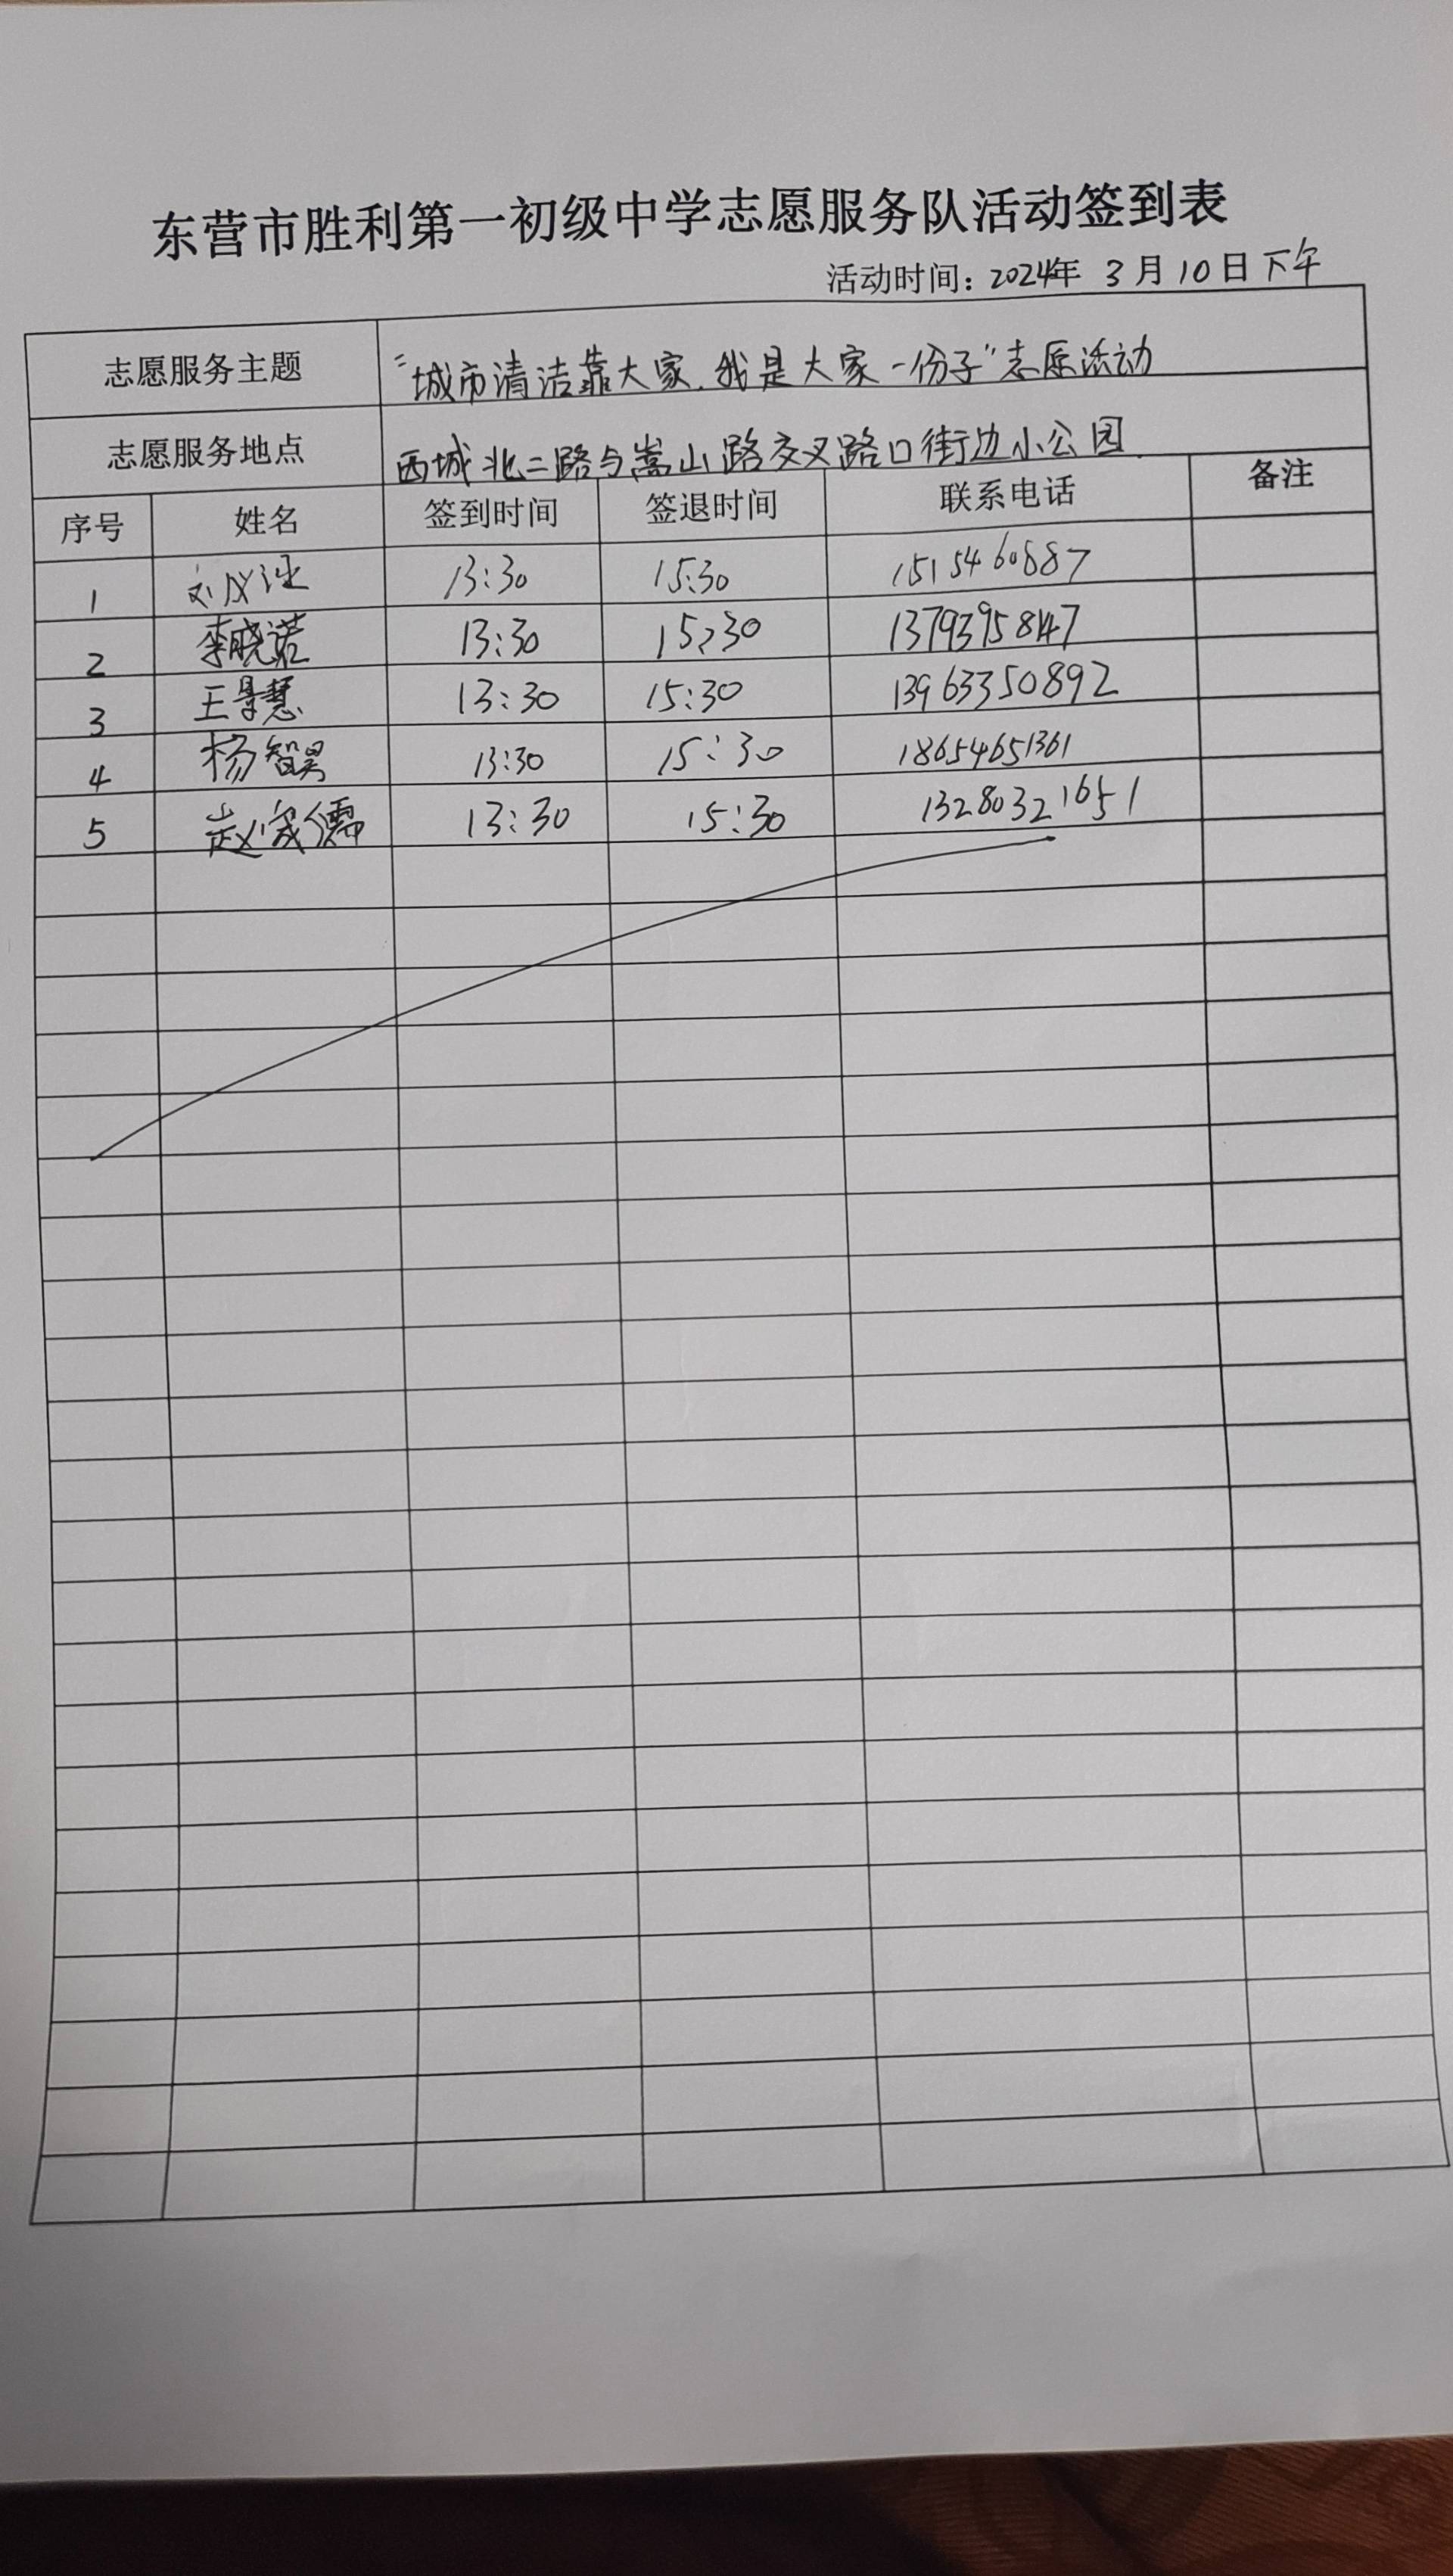 东营市胜利第一初级中学志愿服务队活动签到表
活动时间：2024年 3月10日下午
志愿服务主题 “城市清洁靠大家，我是大家一份子”志愿活动
志愿服务地点 西城北二路与嵩山路交叉路口街边小公园
序号 姓名 签到时间 签退时间 联系电话 备注
1 13:30 15:30 1515460887
2 李晓诺 13:30 15:30 13793958147
3 王景慧 13:30 15:30 13963350892
4 杨智昊 13:30 15:30 18654651361
5 13:30 15:30 13280321651